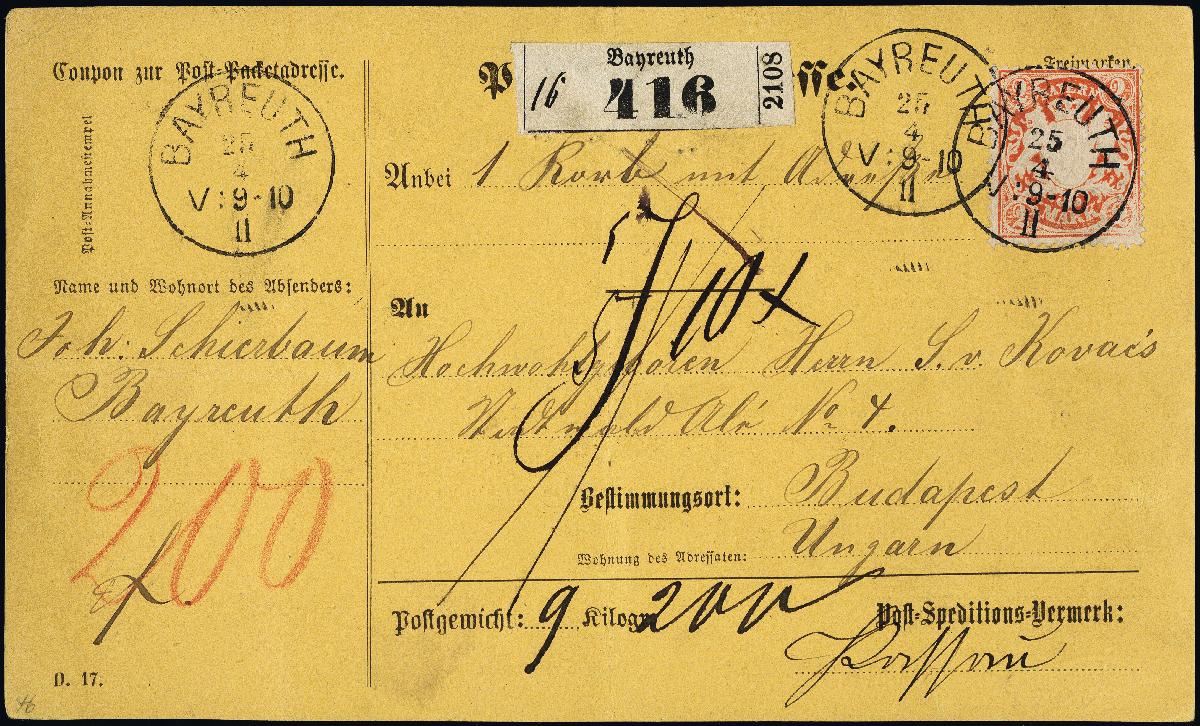 Coupon zur Post-Packetadresse.
Post-Annahmestempel
BAYREUTH
25
4
V:9-10
II
Name und Wohnort des Absenders:
Joh: Schierbaum
Bayreuth
200
D. 17.
Bayreuth
16 416
2108
Freimarken.
BAYREUTH
25
4
V:9-10
II
BAYREUTH
25
4
V:9-10
II
BAYERN
Anbei 1 Korb mit Adresse
An
Hochwohlgeboren Herrn S. v Kovacs
No 4.
Bestimmungsort: Budapest
Wohnung des Adressaten: Ungarn
Postgewicht: 9 Kilogr 200
Post-Speditions-Vermerk:
Passau